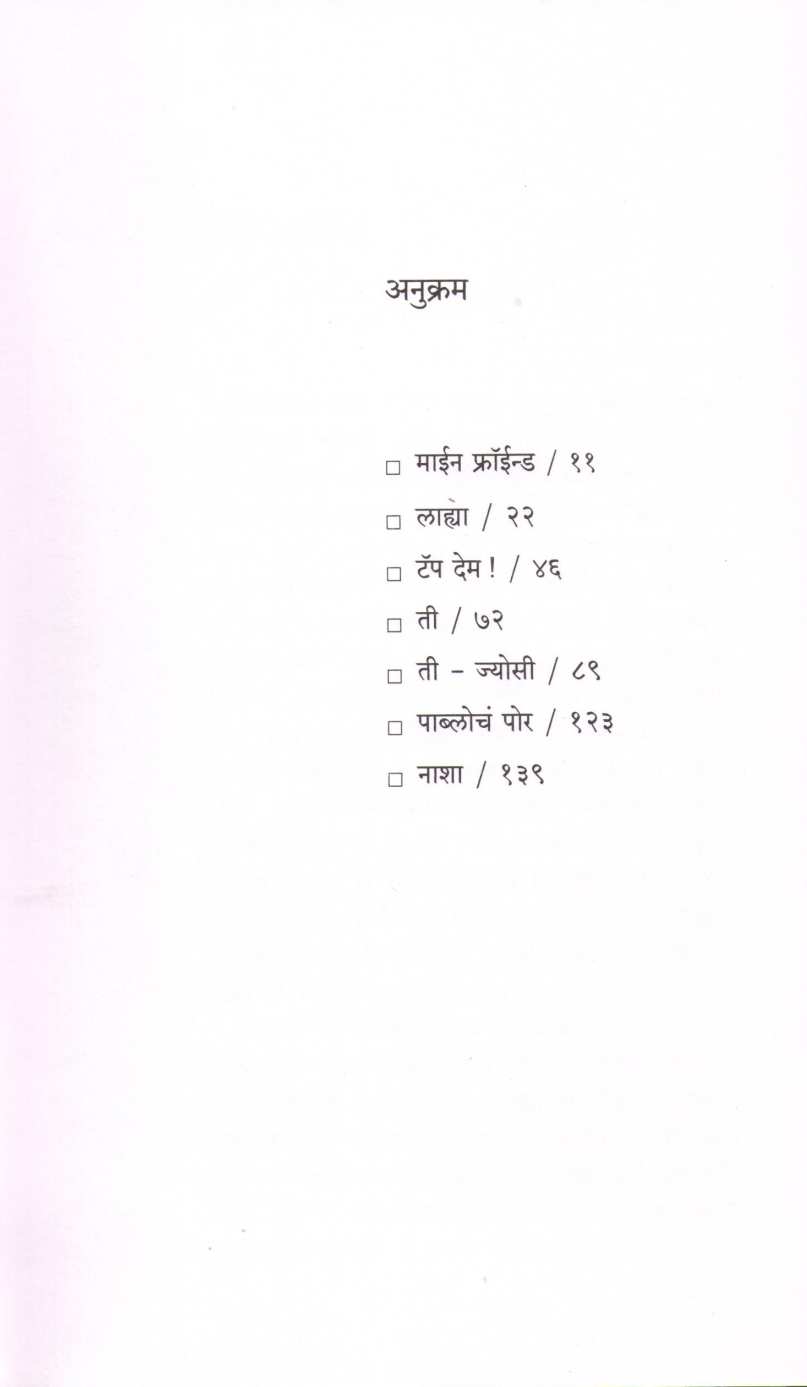 अनुक्रम
□ माईन फ्रॉईन्ड / ११
□ लाह्या / २२
□ टॅप देम! / ४६
□ ती / ७२
□ ती – ज्योसी / ८९
□ पाब्लोचं पोर / १२३
□ नाशा / १३९